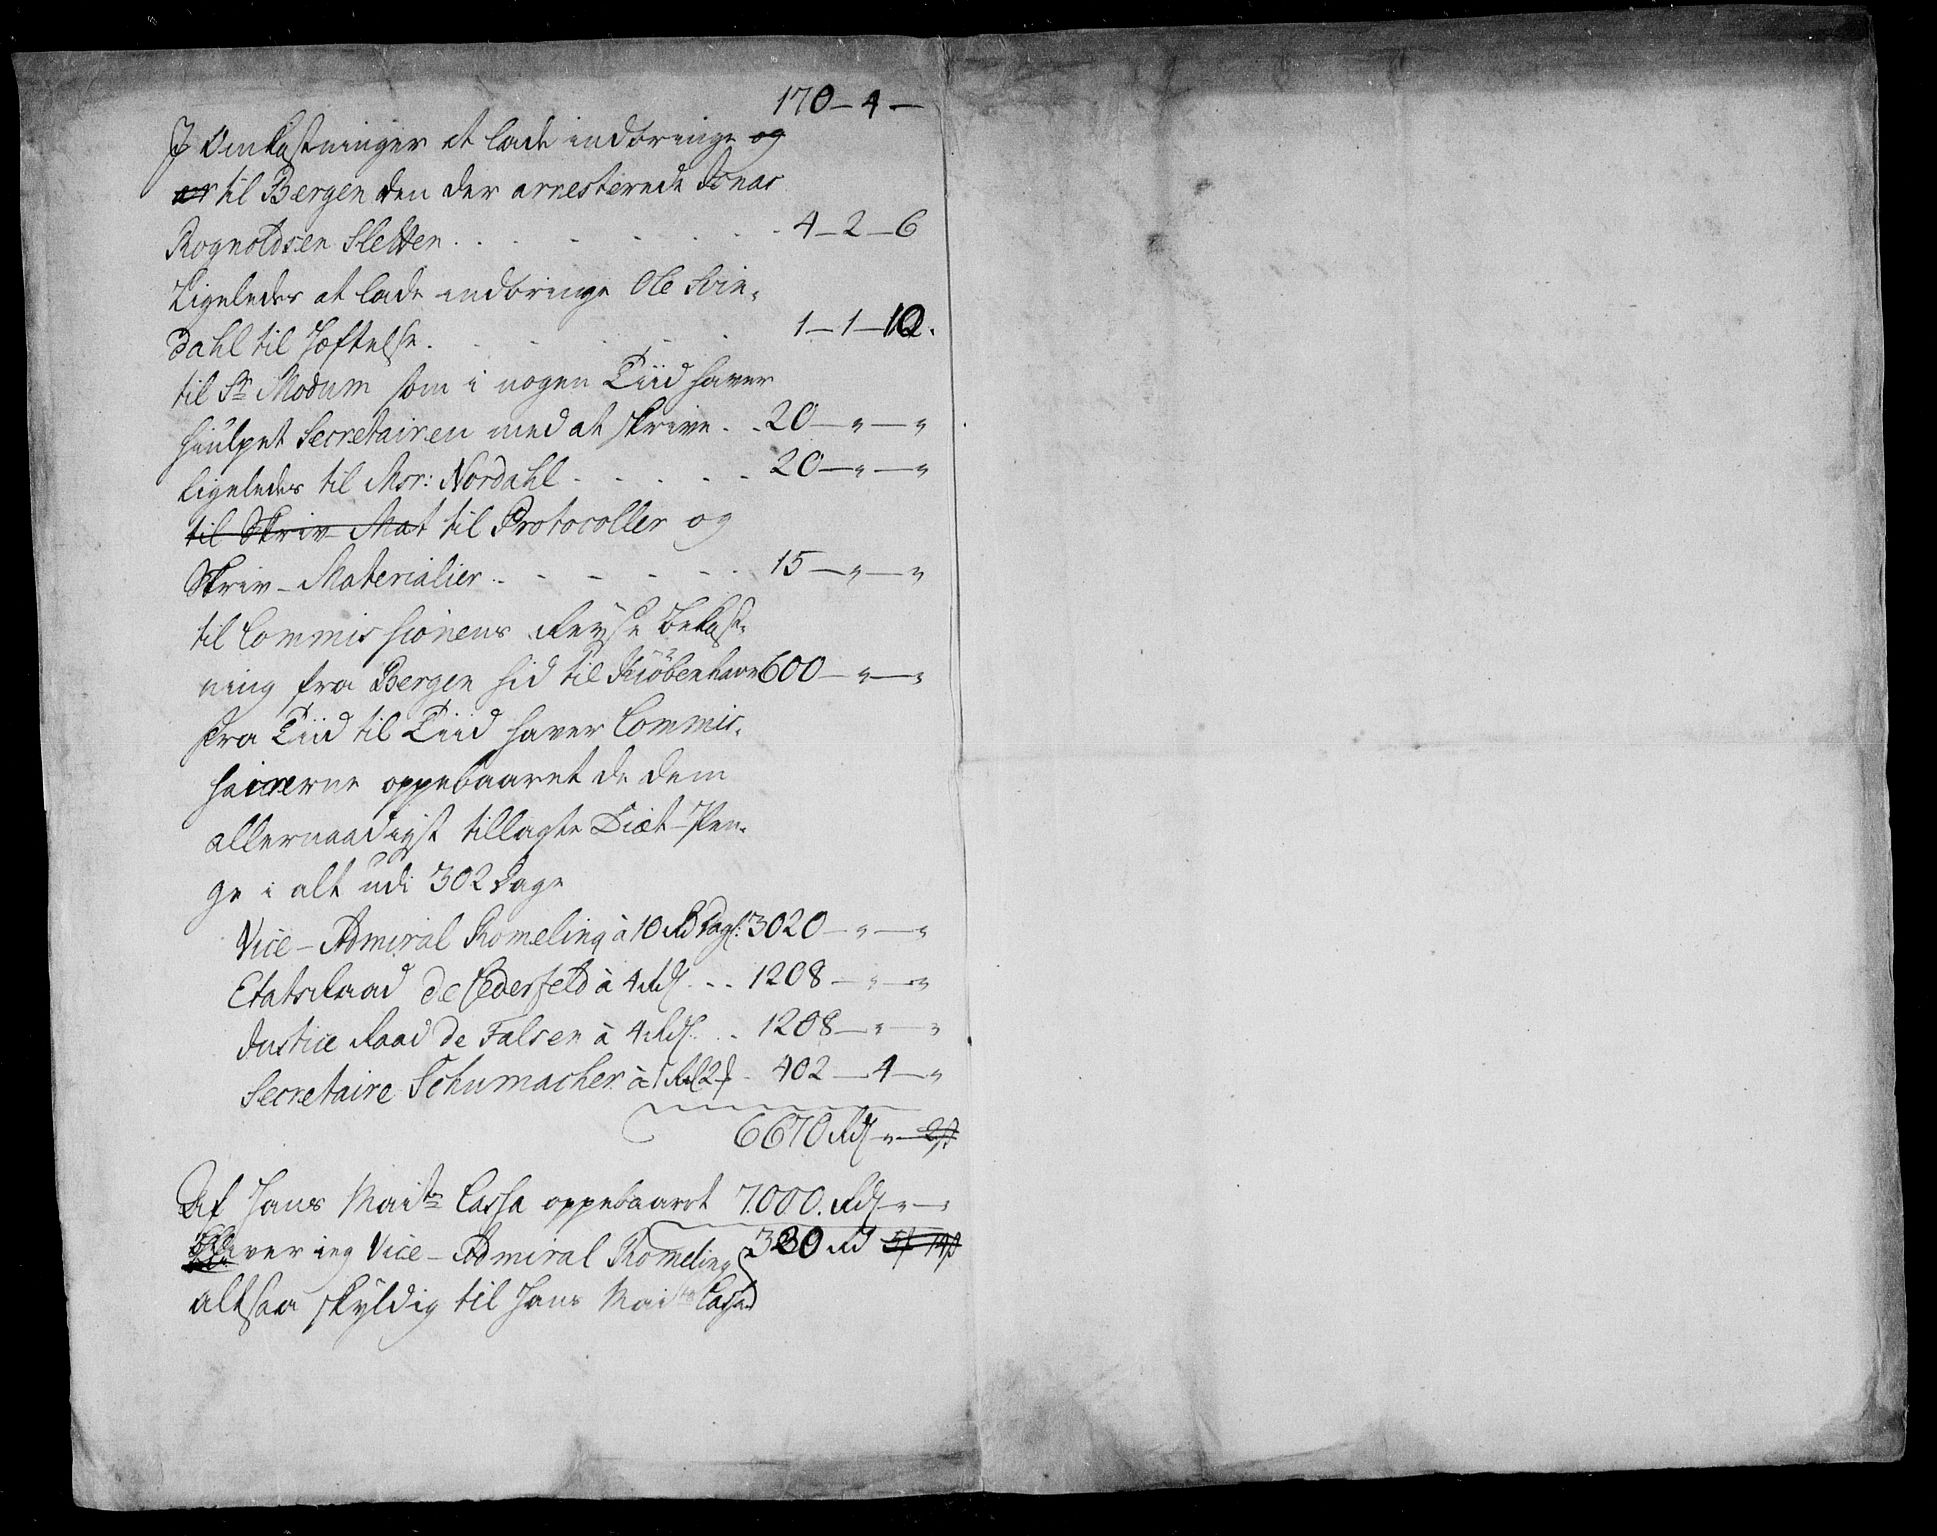 170 – 4 –
I Omkostninger at lade indbringe og
til Bergen den der arresterede Jonas
Rognoldsen Sletten . . . . . . . 4 – 2 – 6
Ligeledes at lade indbringe Ole Svin-
dahl til Hæftelse . . . . . . 1 – 1 – 10.
til Sr Modum som i nogen Tiid haver
hiulpet Secretairen med at skrive . . 20 – " – "
Ligeledes til Msr: Nordahl . . . . . 20 – " – "
til Skriv Mat til Protocoller og
Skriv – Materialier . . . . . . 15 – " – "
til Commissionens Reyse bekost-
ning fra Bergen hid til Kiöbenhavn 600 – " – "
Fra Tiid til Tiid haver Commis-
sairerne oppebaaret de dem
allernaadigst tillagte Diæt – Pen-
ge i alt udi 302 Dage
Vice – Admiral Romeling à 10 Rd dagl: 3020 – " – "
Etats Raad de Cederfeld à 4 Rdl . . . 1208 – " – "
Justice Raad de Falsen à 4 Rdl . . 1208 – " – "
Secretaire Schumacher à 1 Rdl 2 – 402 – 4 – "
6670 Rdl – " – 2 ß
Af Hans Maits Cassa oppebaaret 7000. Rdl – " – "
bliver ieg Vice – Admiral Romeling 330 Rd
altsaa skyldig til Hans Maits Cassa